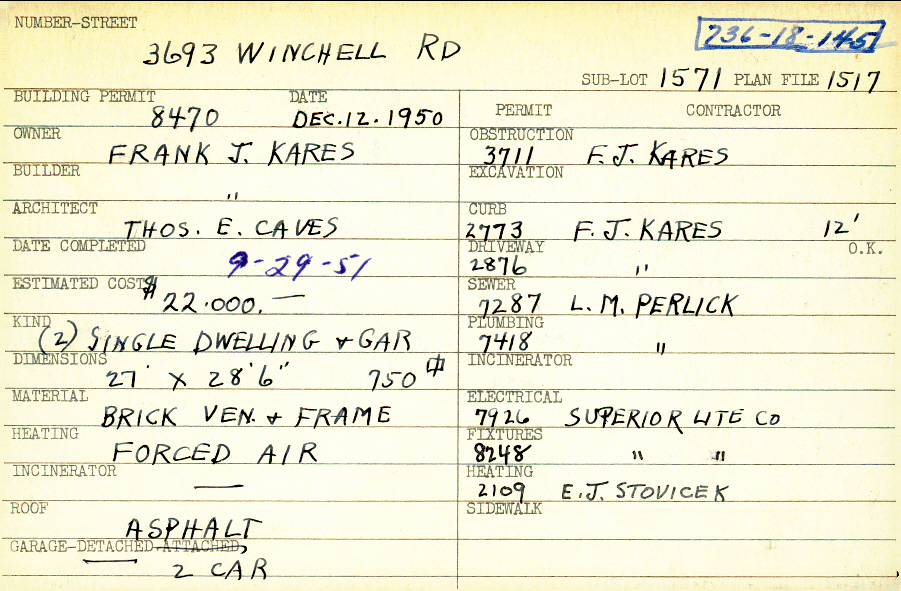 NUMBER-STREET
3693 WINCHELL RD
736-18-145
SUB-LOT 1571 PLAN FILE 1517
BUILDING PERMIT DATE
8470 DEC. 12. 1950
OWNER
FRANK J. KARES
BUILDER
"
ARCHITECT
THOS. E. CAVES
DATE COMPLETED
9-29-51
ESTIMATED COST $
22.000. —
KIND
(2) SINGLE DWELLING & GAR
DIMENSIONS
27' X 28'6" 750
MATERIAL
BRICK VEN. & FRAME
HEATING
FORCED AIR
INCINERATOR
—
ROOF
ASPHALT
GARAGE-DETACHED-ATTACHED,
2 CAR
PERMIT CONTRACTOR
OBSTRUCTION
3711 F. J. KARES
EXCAVATION
CURB
2773 F. J. KARES 12'
DRIVEWAY O.K.
2876 "
SEWER
7287 L. M. PERLICK
PLUMBING
7418 "
INCINERATOR
ELECTRICAL
7926 SUPERIOR LITE CO
FIXTURES
8248 " "
HEATING
2109 E. J. STOVICEK
SIDEWALK